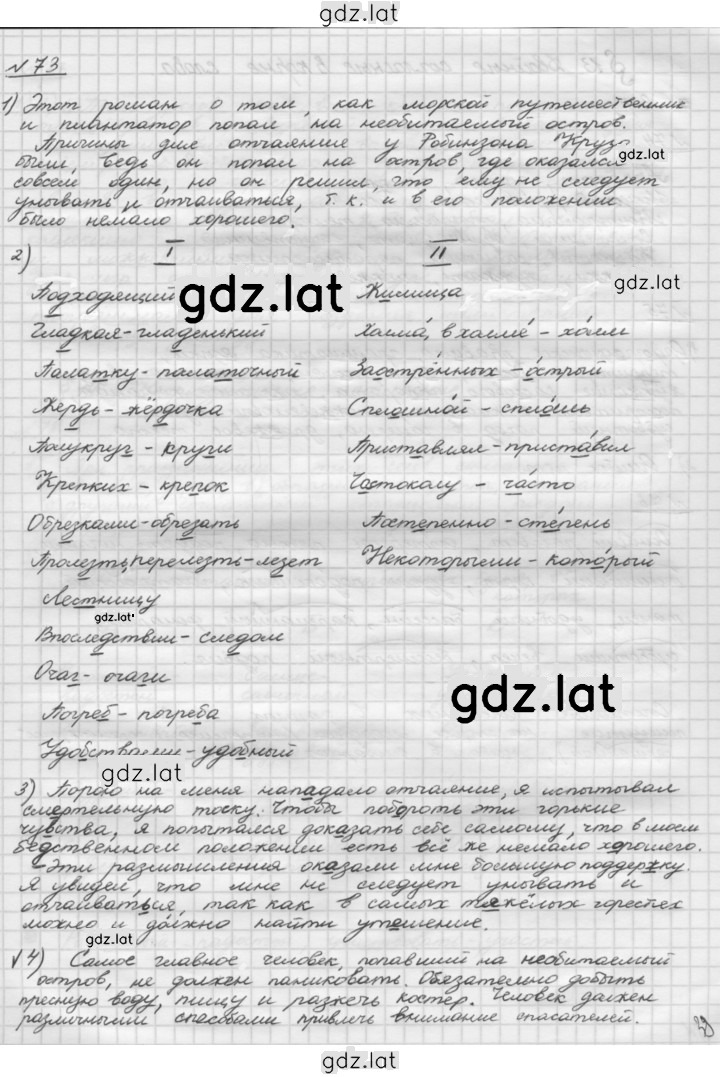 gdz.lat
№ 73
1) Этот роман о том, как морской путешественник
и плантатор попал на необитаемый остров.
Причины для отчаяние у Робинзона Крузо
были, ведь он попал на остров, где оказался
gdz.lat
совсем один, но он решил, что ему не следует
унывать и отчаиваться, т. к. и в его положении
было немало хорошего.
2) I II
Подходящий Жилища
gdz.lat
Гладкая - гладенький Холма, в холме - холм
Палатку - палаточный Заострённых - острый
Жердь - жёрдочка Сплошной - сплошь
Полукруг - круги Приставлял - приставил
Крепких - крепок Частоколу - часто
Обрезками - обрезать Постепенно - степень
Пролезть, перелезть - лезет Некоторыми - который
Лестницу
gdz.lat
Впоследствии - следом
Очаг - очаги
gdz.lat
Погреб - погреба
Удобствами - удобный
gdz.lat
3) Порою на меня нападало отчаяние, я испытывал
смертельную тоску. Чтобы побороть эти горькие
чувства, я попытался доказать себе самому, что в моём
бедственном положении есть всё же немало хорошего.
Эти размышления оказали мне большую поддержку.
Я увидел, что мне не следует унывать и
отчаиваться, так как в самых тяжёлых горестех
можно и должно найти утешение.
gdz.lat
4) Самое главное человек, попавший на необитаемый
остров, не должен паниковать. Обязательно добыть
пресную воду, пищу и разжечь костёр. Человек должен
различными способами привлечь внимание спасателей.
gdz.lat